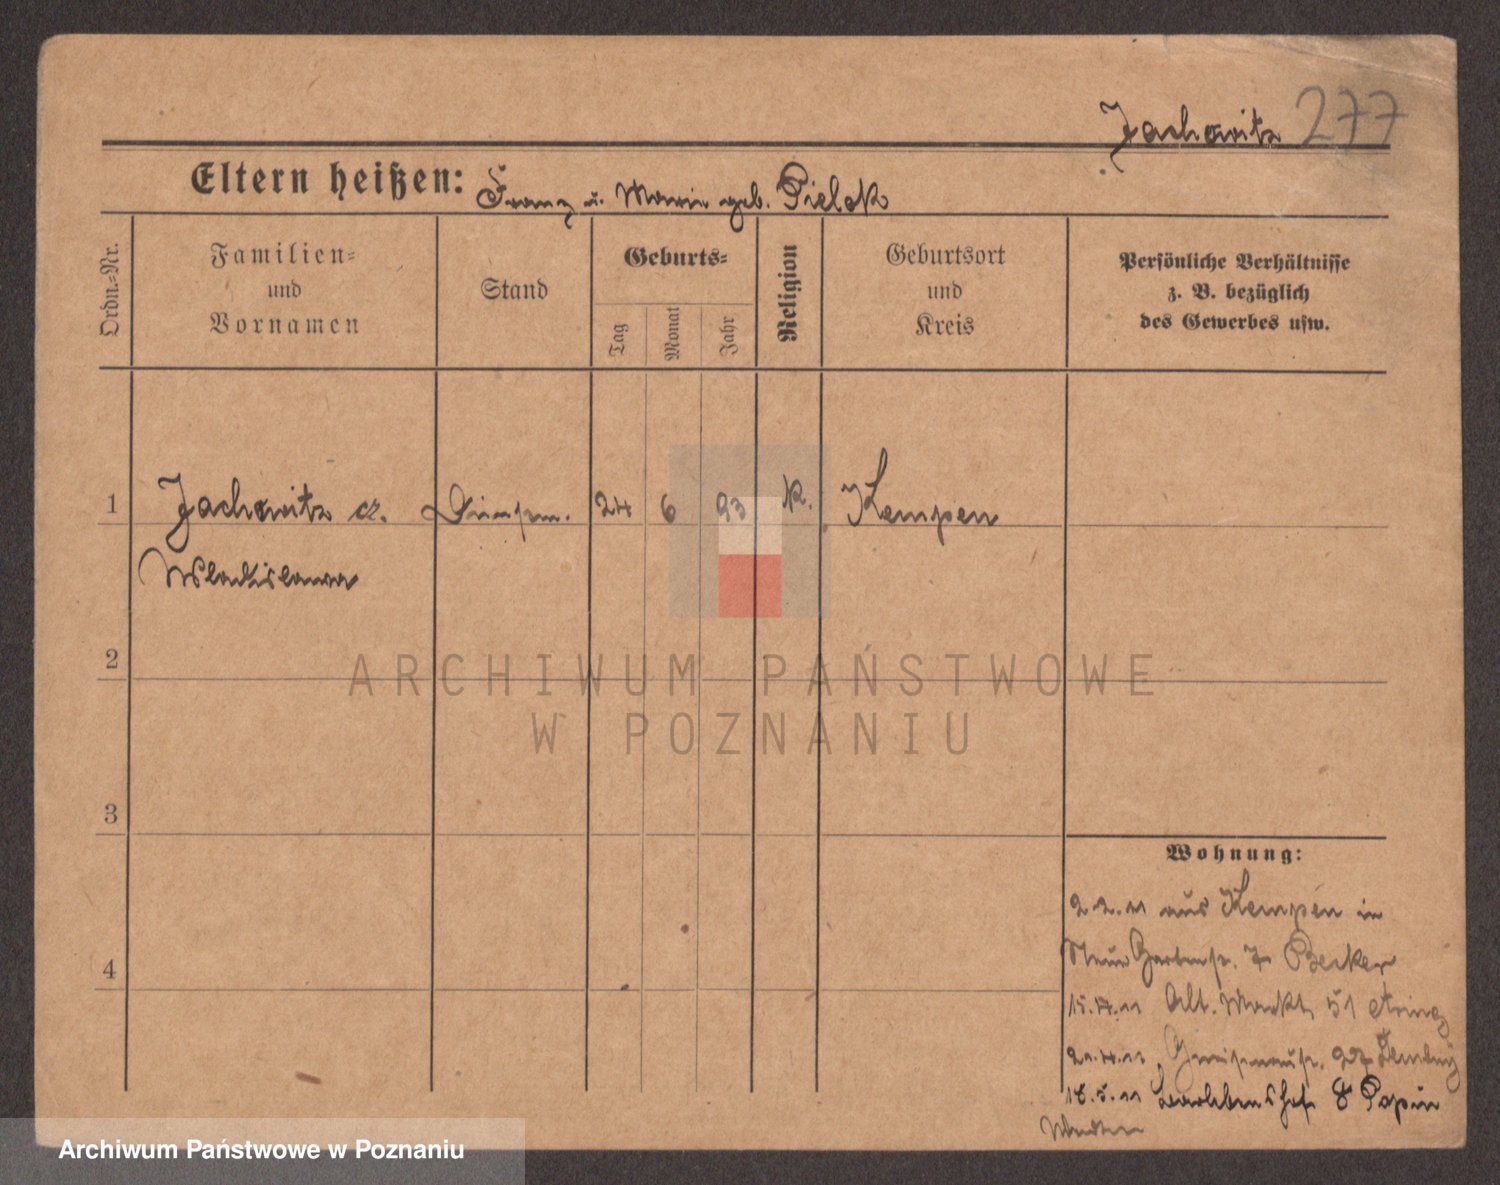 Jachowitz 277
Eltern heißen: Franz u. Marie geb. Pielok
Ordn.=Nr.
Familien=
und
Vornamen
Stand
Geburts=
Tag
Monat
Jahr
Religion
Geburtsort
und
Kreis
Persönliche Verhältnisse
z. B. bezüglich
des Gewerbes usw.
1 Jachowitz 24 6 93 k. Kempen
Wladislawa
2
3
4
Wohnung:
2.2.11 aus Kempen in
Neue Gartenstr. 7 Becker
15.4.11 Alt. Markt 51
21.4.11 Gneisenaustr.
18.5.11 8 Papin
ARCHIWUM PAŃSTWOWE
W POZNANIU
Archiwum Państwowe w Poznaniu